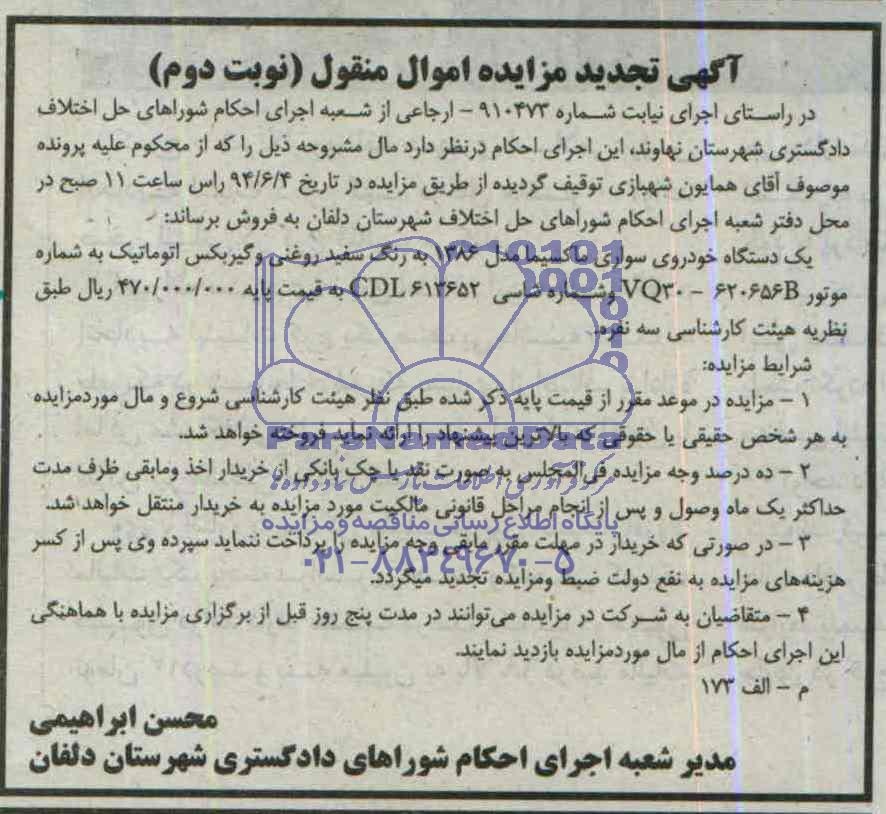 آگهی تجدید مزایده اموال منقول (نوبت دوم)
در راستای اجرای نیابت شماره ۹۱۰۴۷۳ - ارجاعی از شعبه اجرای احکام شوراهای حل اختلاف
دادگستری شهرستان نهاوند، این اجرای احکام درنظر دارد مال مشروحه ذیل را که از محکوم علیه پرونده
موصوف آقای همایون شهبازی توقیف گردیده از طریق مزایده در تاریخ ۹۴/۶/۴ راس ساعت ۱۱ صبح در
محل دفتر شعبه اجرای احکام شوراهای حل اختلاف شهرستان دلفان به فروش برساند:
یک دستگاه خودروی سواری ماکسیما مدل ۱۳۸۶ به رنگ سفید روغنی وگیربکس اتوماتیک به شماره
موتور VQ۳۰ - ۶۲۰۶۵۶B وشماره شاسی CDL ۶۱۳۶۵۲ به قیمت پایه ۴۷۰/۰۰۰/۰۰۰ ریال طبق
نظریه هیئت کارشناسی سه نفره.
شرایط مزایده:
۱ - مزایده در موعد مقرر از قیمت پایه ذکر شده طبق نظر هیئت کارشناسی شروع و مال موردمزایده
به هر شخص حقیقی یا حقوقی که بالاترین پیشنهاد را ارائه نماید فروخته خواهد شد.
ParsNamadData
۲ - ده درصد وجه مزایده فی‌المجلس به صورت نقد یا چک بانکی از خریدار اخذ ومابقی ظرف مدت
حداکثر یک ماه وصول و پس از انجام مراحل قانونی مالکیت مورد مزایده به خریدار منتقل خواهد شد.
پایگاه اطلاع رسانی مناقصه و مزایده
۳ - در صورتی که خریدار در مهلت مقرر مابقی وجه مزایده را پرداخت ننماید سپرده وی پس از کسر
۰۲۱-۸۸۳۴۹۶۷۰-۵
هزینه‌های مزایده به نفع دولت ضبط ومزایده تجدید میگردد.
۴ - متقاضیان به شرکت در مزایده می‌توانند در مدت پنج روز قبل از برگزاری مزایده با هماهنگی
این اجرای احکام از مال موردمزایده بازدید نمایند.
م - الف ۱۷۳
محسن ابراهیمی
مدیر شعبه اجرای احکام شوراهای دادگستری شهرستان دلفان